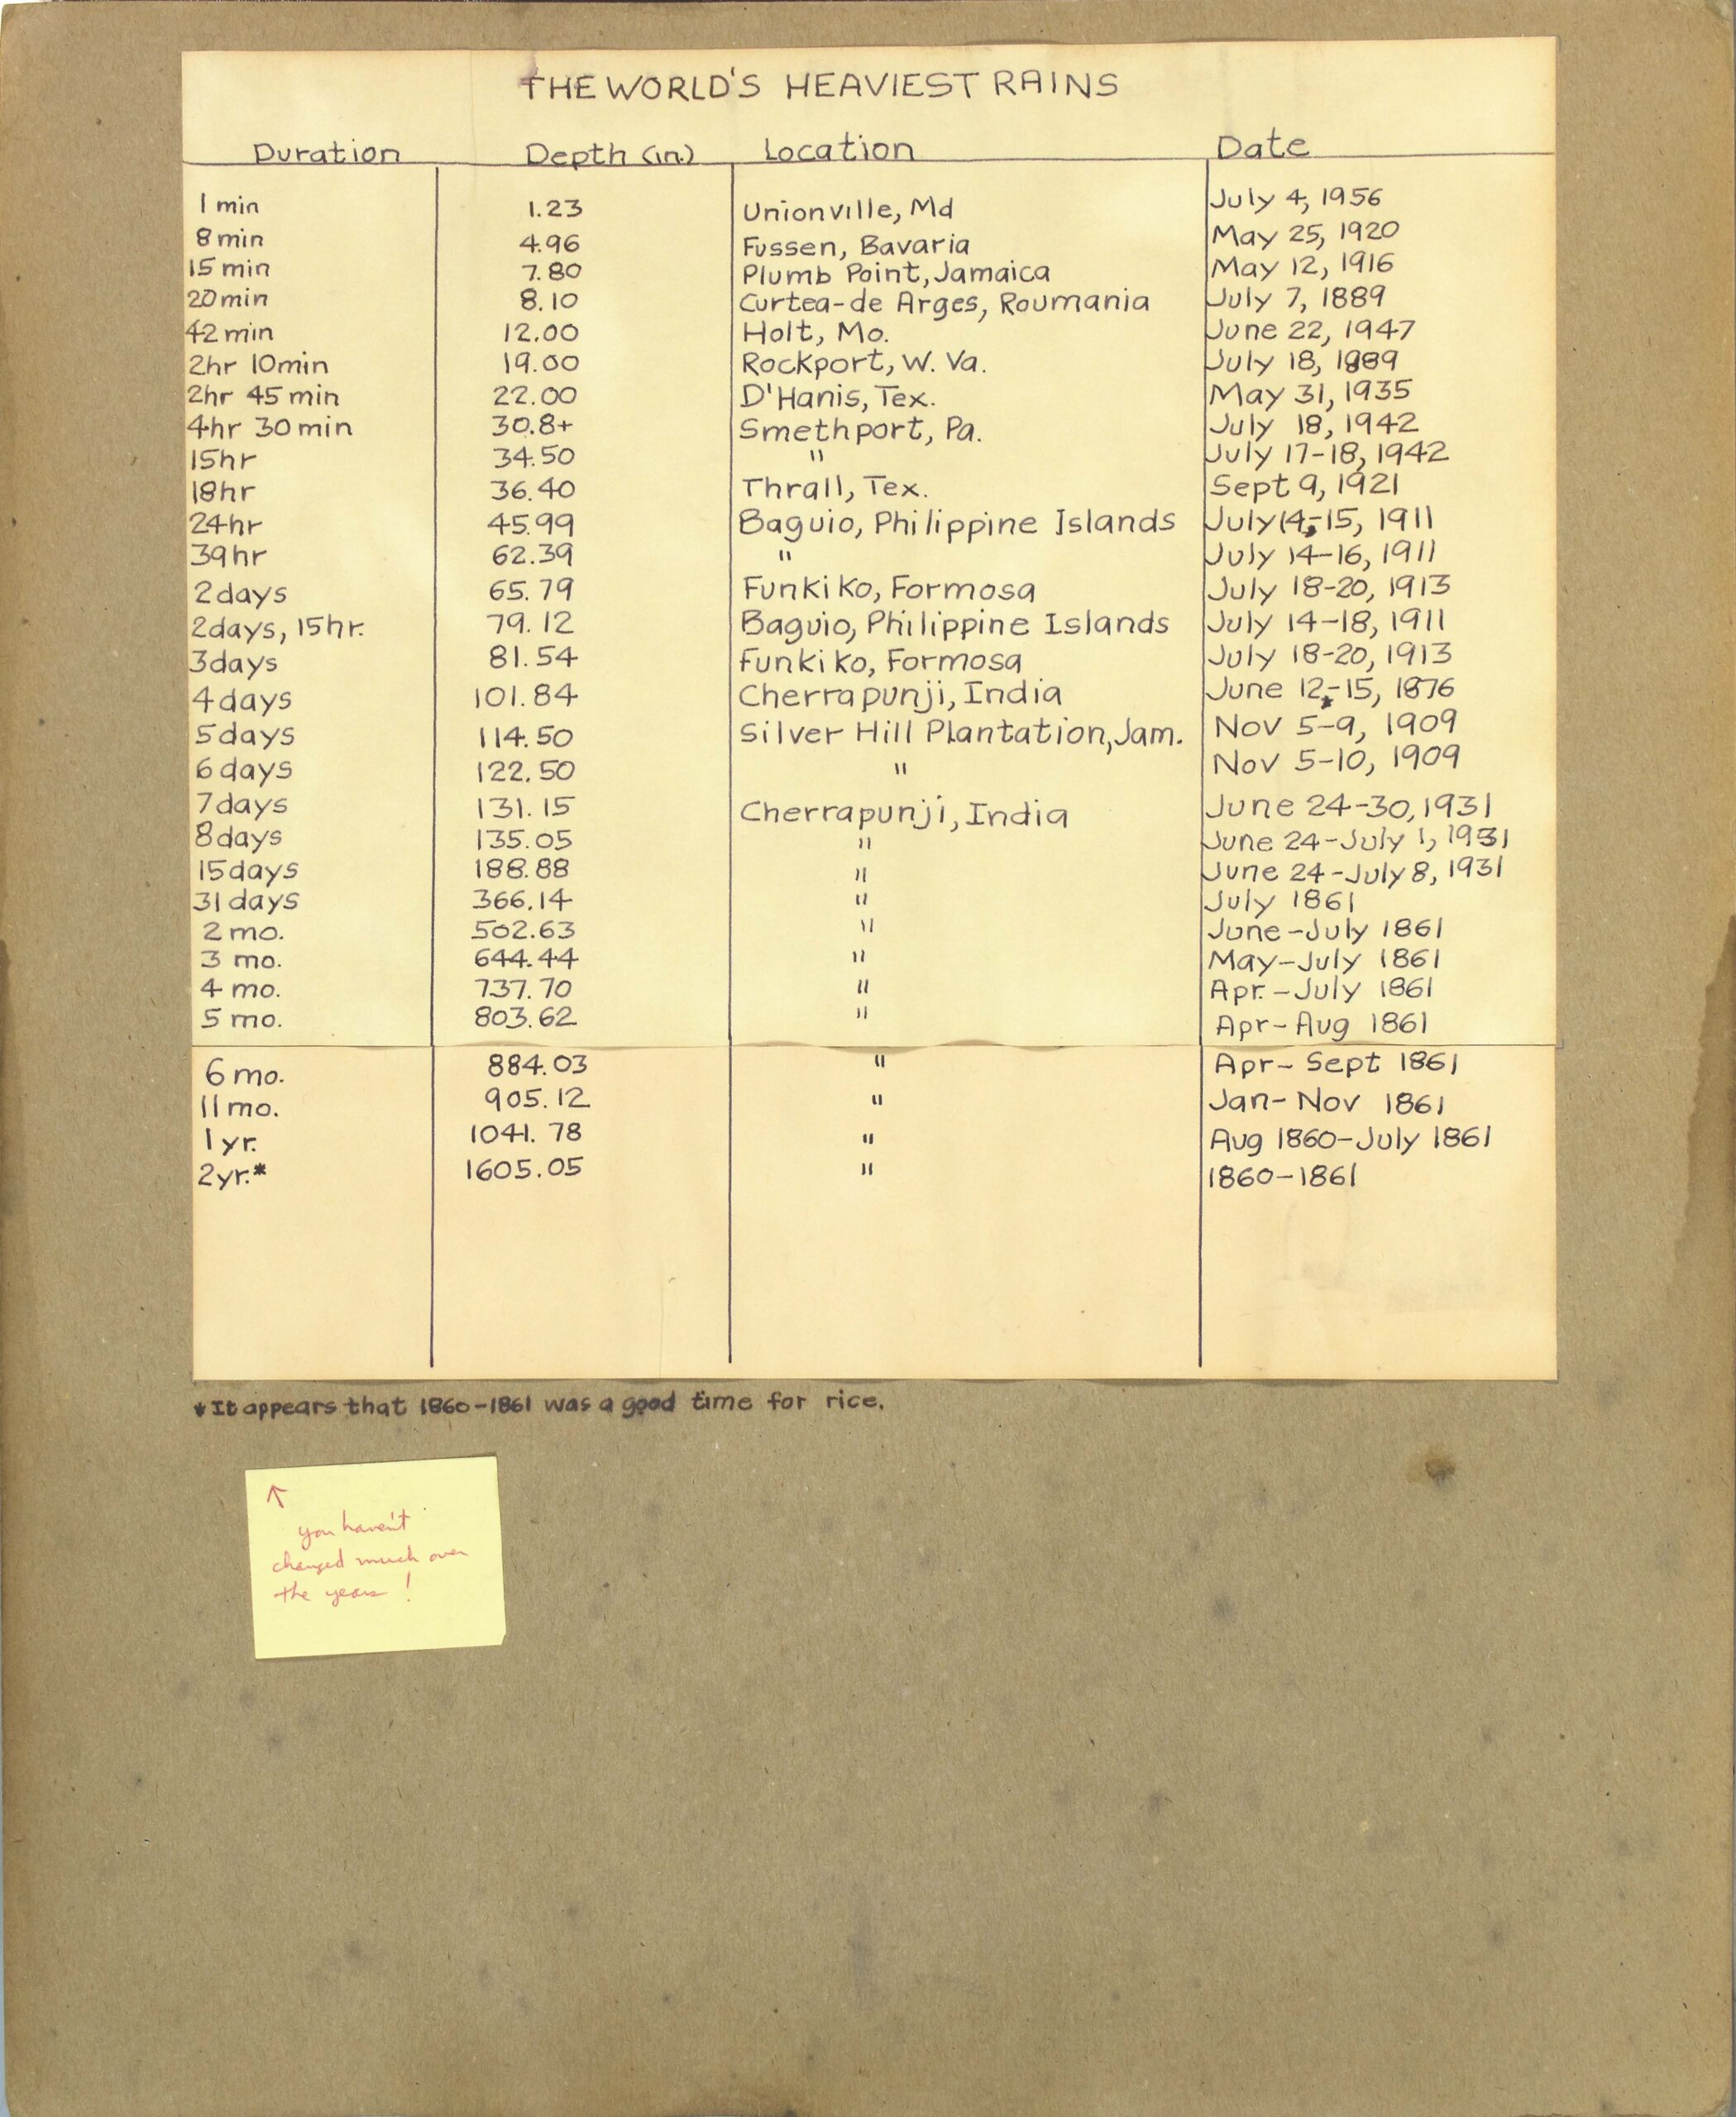 THE WORLD'S HEAVIEST RAINS
Duration Depth (in.) Location Date
1 min 1.23 Unionville, Md July 4, 1956
8 min 4.96 Fussen, Bavaria May 25, 1920
15 min 7.80 Plumb Point, Jamaica May 12, 1916
20 min 8.10 Curtea-de Arges, Roumania July 7, 1889
42 min 12.00 Holt, Mo. June 22, 1947
2hr 10min 19.00 Rockport, W. Va. July 18, 1889
2hr 45 min 22.00 D'Hanis, Tex. May 31, 1935
4hr 30 min 30.8+ Smethport, Pa. July 18, 1942
15hr 34.50 " July 17-18, 1942
18hr 36.40 Thrall, Tex. Sept 9, 1921
24hr 45.99 Baguio, Philippine Islands July 14-15, 1911
39hr 62.39 " July 14-16, 1911
2days 65.79 Funkiko, Formosa July 18-20, 1913
2days, 15hr. 79.12 Baguio, Philippine Islands July 14-18, 1911
3days 81.54 Funkiko, Formosa July 18-20, 1913
4days 101.84 Cherrapunji, India June 12-15, 1876
5days 114.50 Silver Hill Plantation, Jam. Nov 5-9, 1909
6days 122.50 " Nov 5-10, 1909
7days 131.15 Cherrapunji, India June 24-30, 1931
8days 135.05 " June 24-July 1, 1931
15days 188.88 " June 24-July 8, 1931
31days 366.14 " July 1861
2 mo. 502.63 " June-July 1861
3 mo. 644.44 " May-July 1861
4 mo. 737.70 " Apr.-July 1861
5 mo. 803.62 " Apr-Aug 1861
6 mo. 884.03 " Apr-Sept 1861
11 mo. 905.12 " Jan-Nov 1861
1 yr. 1041.78 " Aug 1860-July 1861
2 yr.* 1605.05 " 1860-1861
*It appears that 1860-1861 was a good time for rice.
↑
you haven't
changed much over
the years!